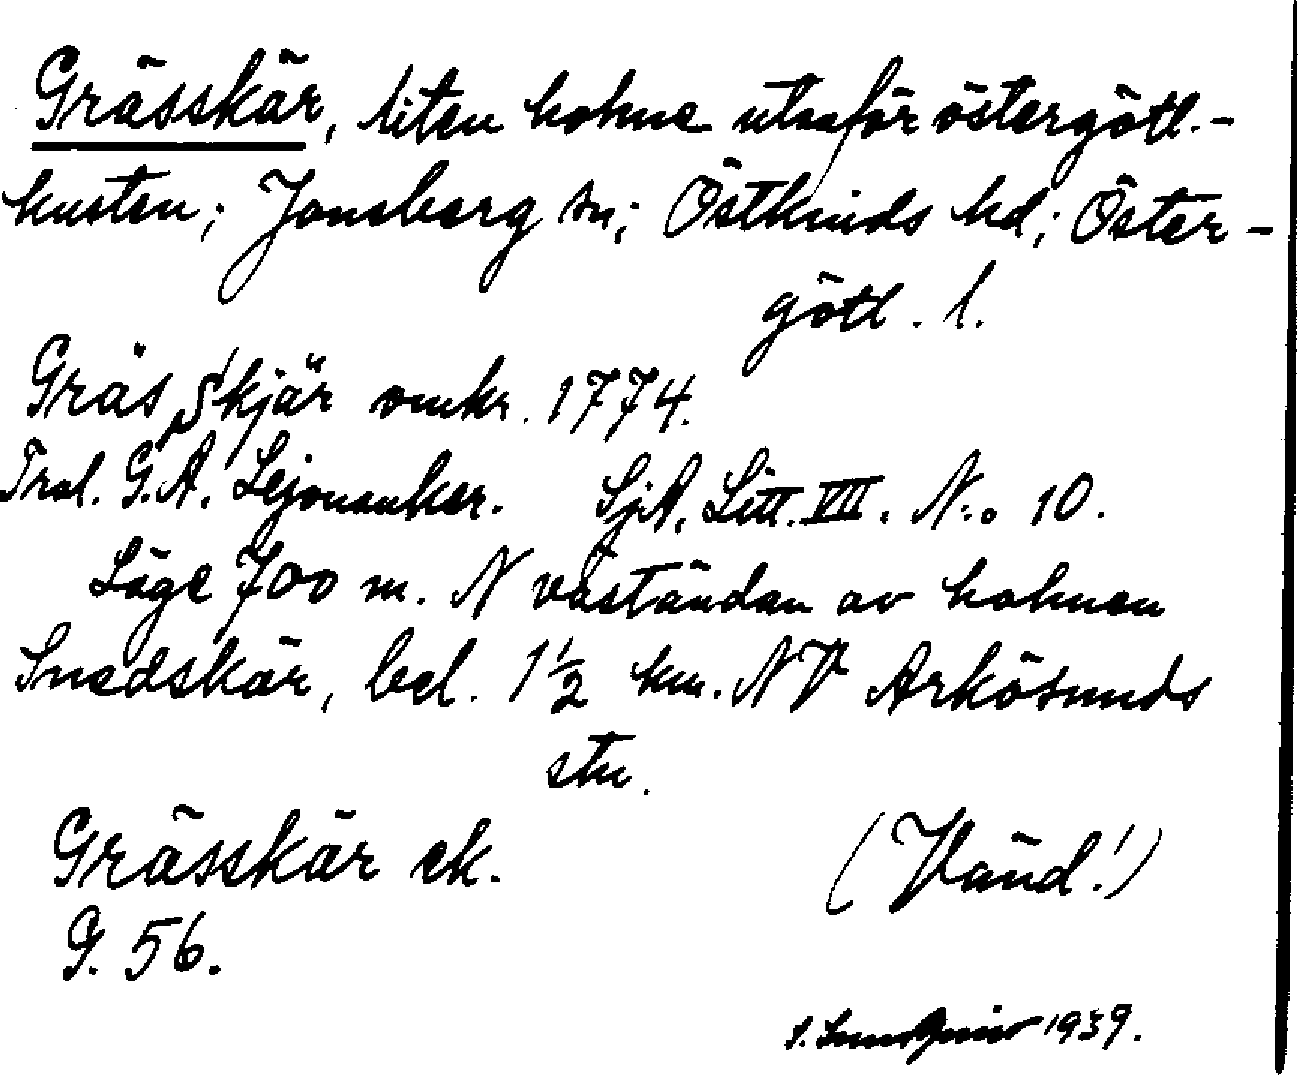 Grässkär, liten holme utanför östergötl.-
kusten; Jonsberg sn; Östkinds hd; Öster-
götl. l.
Gräs Skjär omkr. 1774.
Trol. G.A. Lejonanker. SjA, Litt. VII. N:o 10.
Läge 700 m. N väständan av holmen
Snedskär, bel. 1 1/2 km. NV Arkösunds
stn.
Grässkär ek.
G. 56.
(Vänd!)
1939.